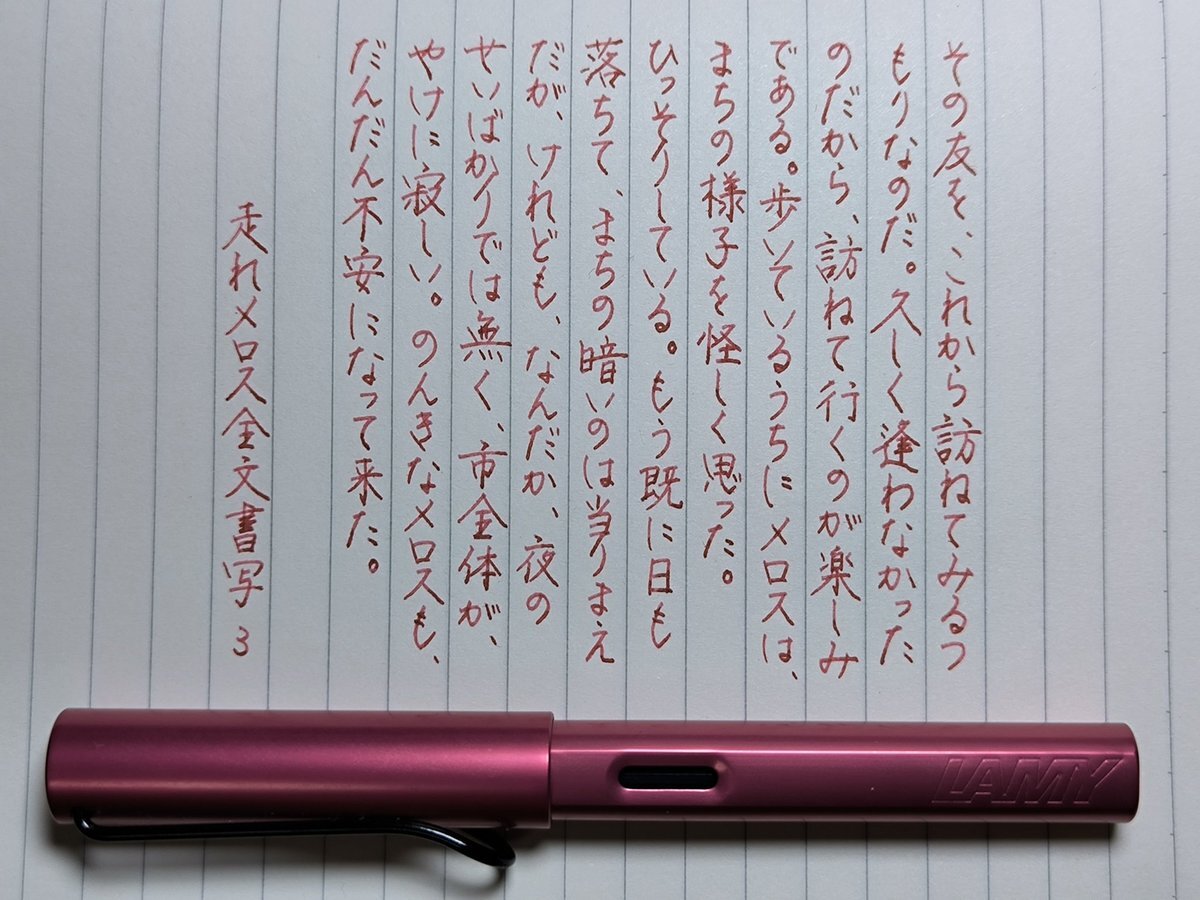 その友を、これから訪ねてみるつ
もりなのだ。久しく逢わなかった
のだから、訪ねて行くのが楽しみ
である。歩いているうちにメロスは、
まちの様子を怪しく思った。
ひっそりしている。もう既に日も
落ちて、まちの暗いのは当りまえ
だが、けれども、なんだか、夜の
せいばかりでは無く、市全体が、
やけに寂しい。のんきなメロスも、
だんだん不安になって来た。
走れメロス全文書写3
LAMY